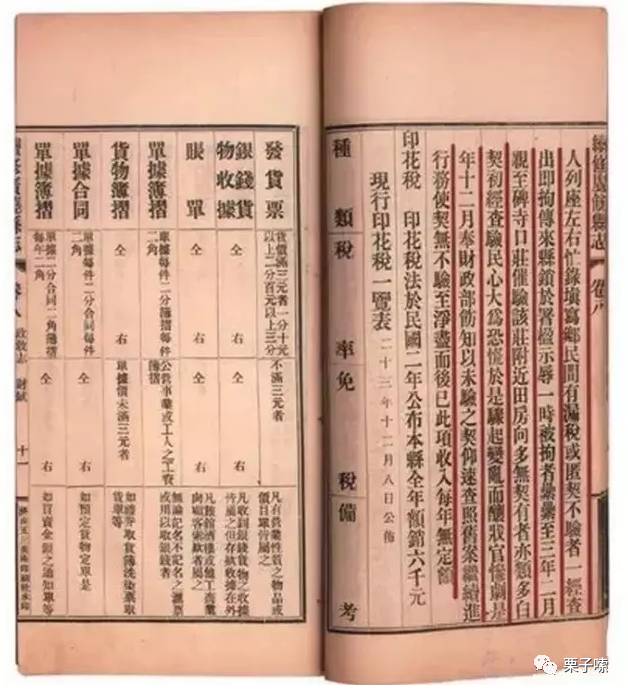 人列座左右忙錄填寫鄉民間有漏稅或匿契不驗者一經查
出即拘傳來縣鎖於署檐示辱一時被拘者纍纍至三年二月
親至碑寺口莊催驗該莊附近田房向多無契有者亦類多白
契初經查驗民心大為恐慌於是驟起變亂而釀狀官慘劇是
年十二月奉財政部飭知以未驗之契仰速查照舊案繼續進
行務使契無不驗至淨盡而後已此項收入每年無定額
印花稅　印花稅法於民國二年公布本縣全年額銷六千元
現行印花稅一覽表 二十三年十二月八日公佈
種類 稅率 免稅 備考
縣志 卷八
發貨票
貨價滿三元者一分十元
以上二分百元以上三分
不滿三元者
凡有營業性質之物品或
價目單皆屬之
銀錢貨
物收據
仝右
仝右
凡收到銀錢貨物之收據
皆屬之但存款收據在外
賬單
仝右
仝右
凡旅館酒樓或他工商業
向顧客索款者屬之
單據簿摺
單據每件二分簿摺每件
二角
公營事業或工人之工資
簿摺
無論記名不記名之滙票
或用以取銀錢者
貨物簿摺
仝右
單據價未滿三元者
如禮券取貨簿洗染票取
貨單等
單據合同
單據每件二分合同每件
二角
仝右
如預定貨物定單是
單據簿摺
單據每件二分合同二角簿摺
每年二角
仝右
如買賣金銀之通知單等
縣志 卷八 政教志 財賦 十一
栗子嗦